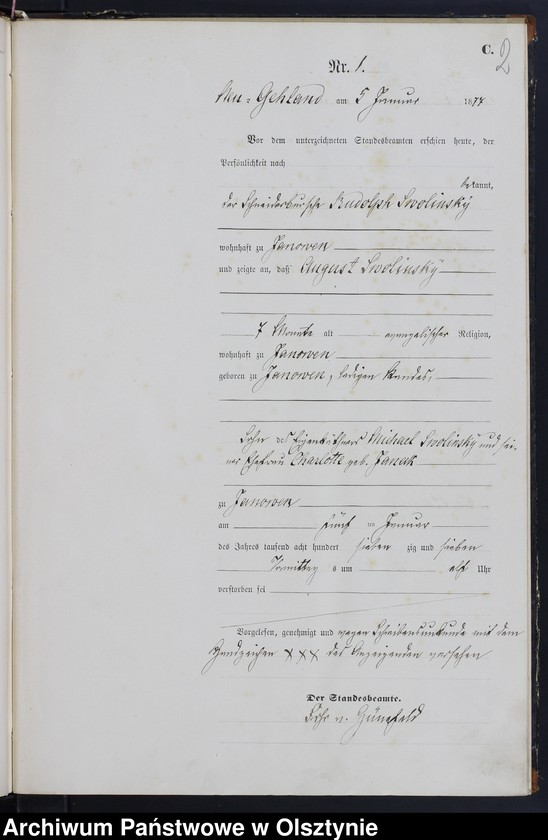 C.
2
Nr. 1.
Neu-Gehland am 5 Januar 1877
Vor dem unterzeichneten Standesbeamten erschien heute, der
Persönlichkeit nach
bekannt,
der Schneiderbursche Rudolph Swolinsky
wohnhaft zu Janowen
und zeigte an, daß August Swolinsky
7 Monate alt evangelischer Religion,
wohnhaft zu Janowen
geboren zu Janowen, ledigen Standes,
Sohn des Eigenkäthners Michael Swolinsky und sei-
ner Ehefrau Charlotte geb. Janak
zu Janowen
am fünf ten Januar
des Jahres tausend acht hundert sieben zig und sieben
Vormittag s um elf Uhr
verstorben sei
Vorgelesen, genehmigt und wegen Schreibensunkunde mit dem
Handzeichen XXX des Anzeigenden versehen
Der Standesbeamte.
Frhr v.
Archiwum Państwowe w Olsztynie